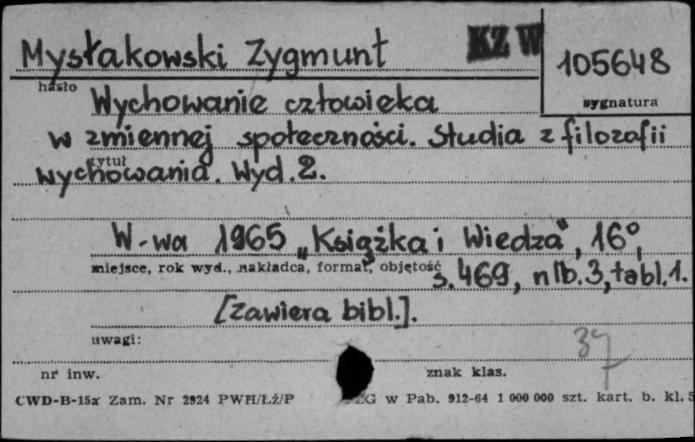 Mysłakowski Zygmunt KZ W
105648
hasło
sygnatura
Wychowanie człowieka
w zmiennej społeczności. Studia z filozofii
tytuł
wychowania. Wyd. 2.
W-wa 1965 „Książka i Wiedza", 16°,
miejsce, rok wyd., nakładca, format, objętość
s. 469, nlb. 3, tabl. 1.
[Zawiera bibl.].
uwagi:
37
nr inw. znak klas.
CWD-B-15a Zam. Nr 2924 PWH/Łź/P ZG w Pab. 912-64 1 000 000 szt. kart. b. kl. 5